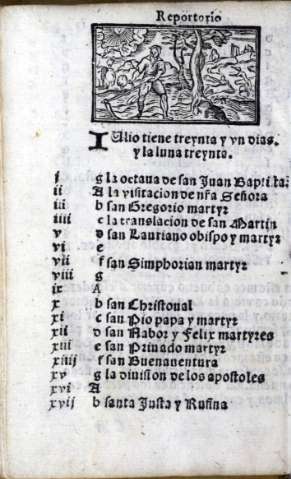 Reportorio
Iulio tiene treynta y vn dias.
y la luna treynta.
i g la octaua de san Juan Baptista.
ii A la visitacion de nr̃a Señora
iii b san Gregorio martyr
iiii c la translacion de san Martin
v d san Lauriano obispo y martyr
vi e
vii f san Simphorian martyr
viii g
ix A
x b san Christoual
xi c san Pio papa y martyr
xii d san Nabor y Felix martyres
xiii e san Priuado martyr
xiiii f san Buenauentura
xv g la diuision de los apostoles
xvi A
xvij b santa Justa y Rufina